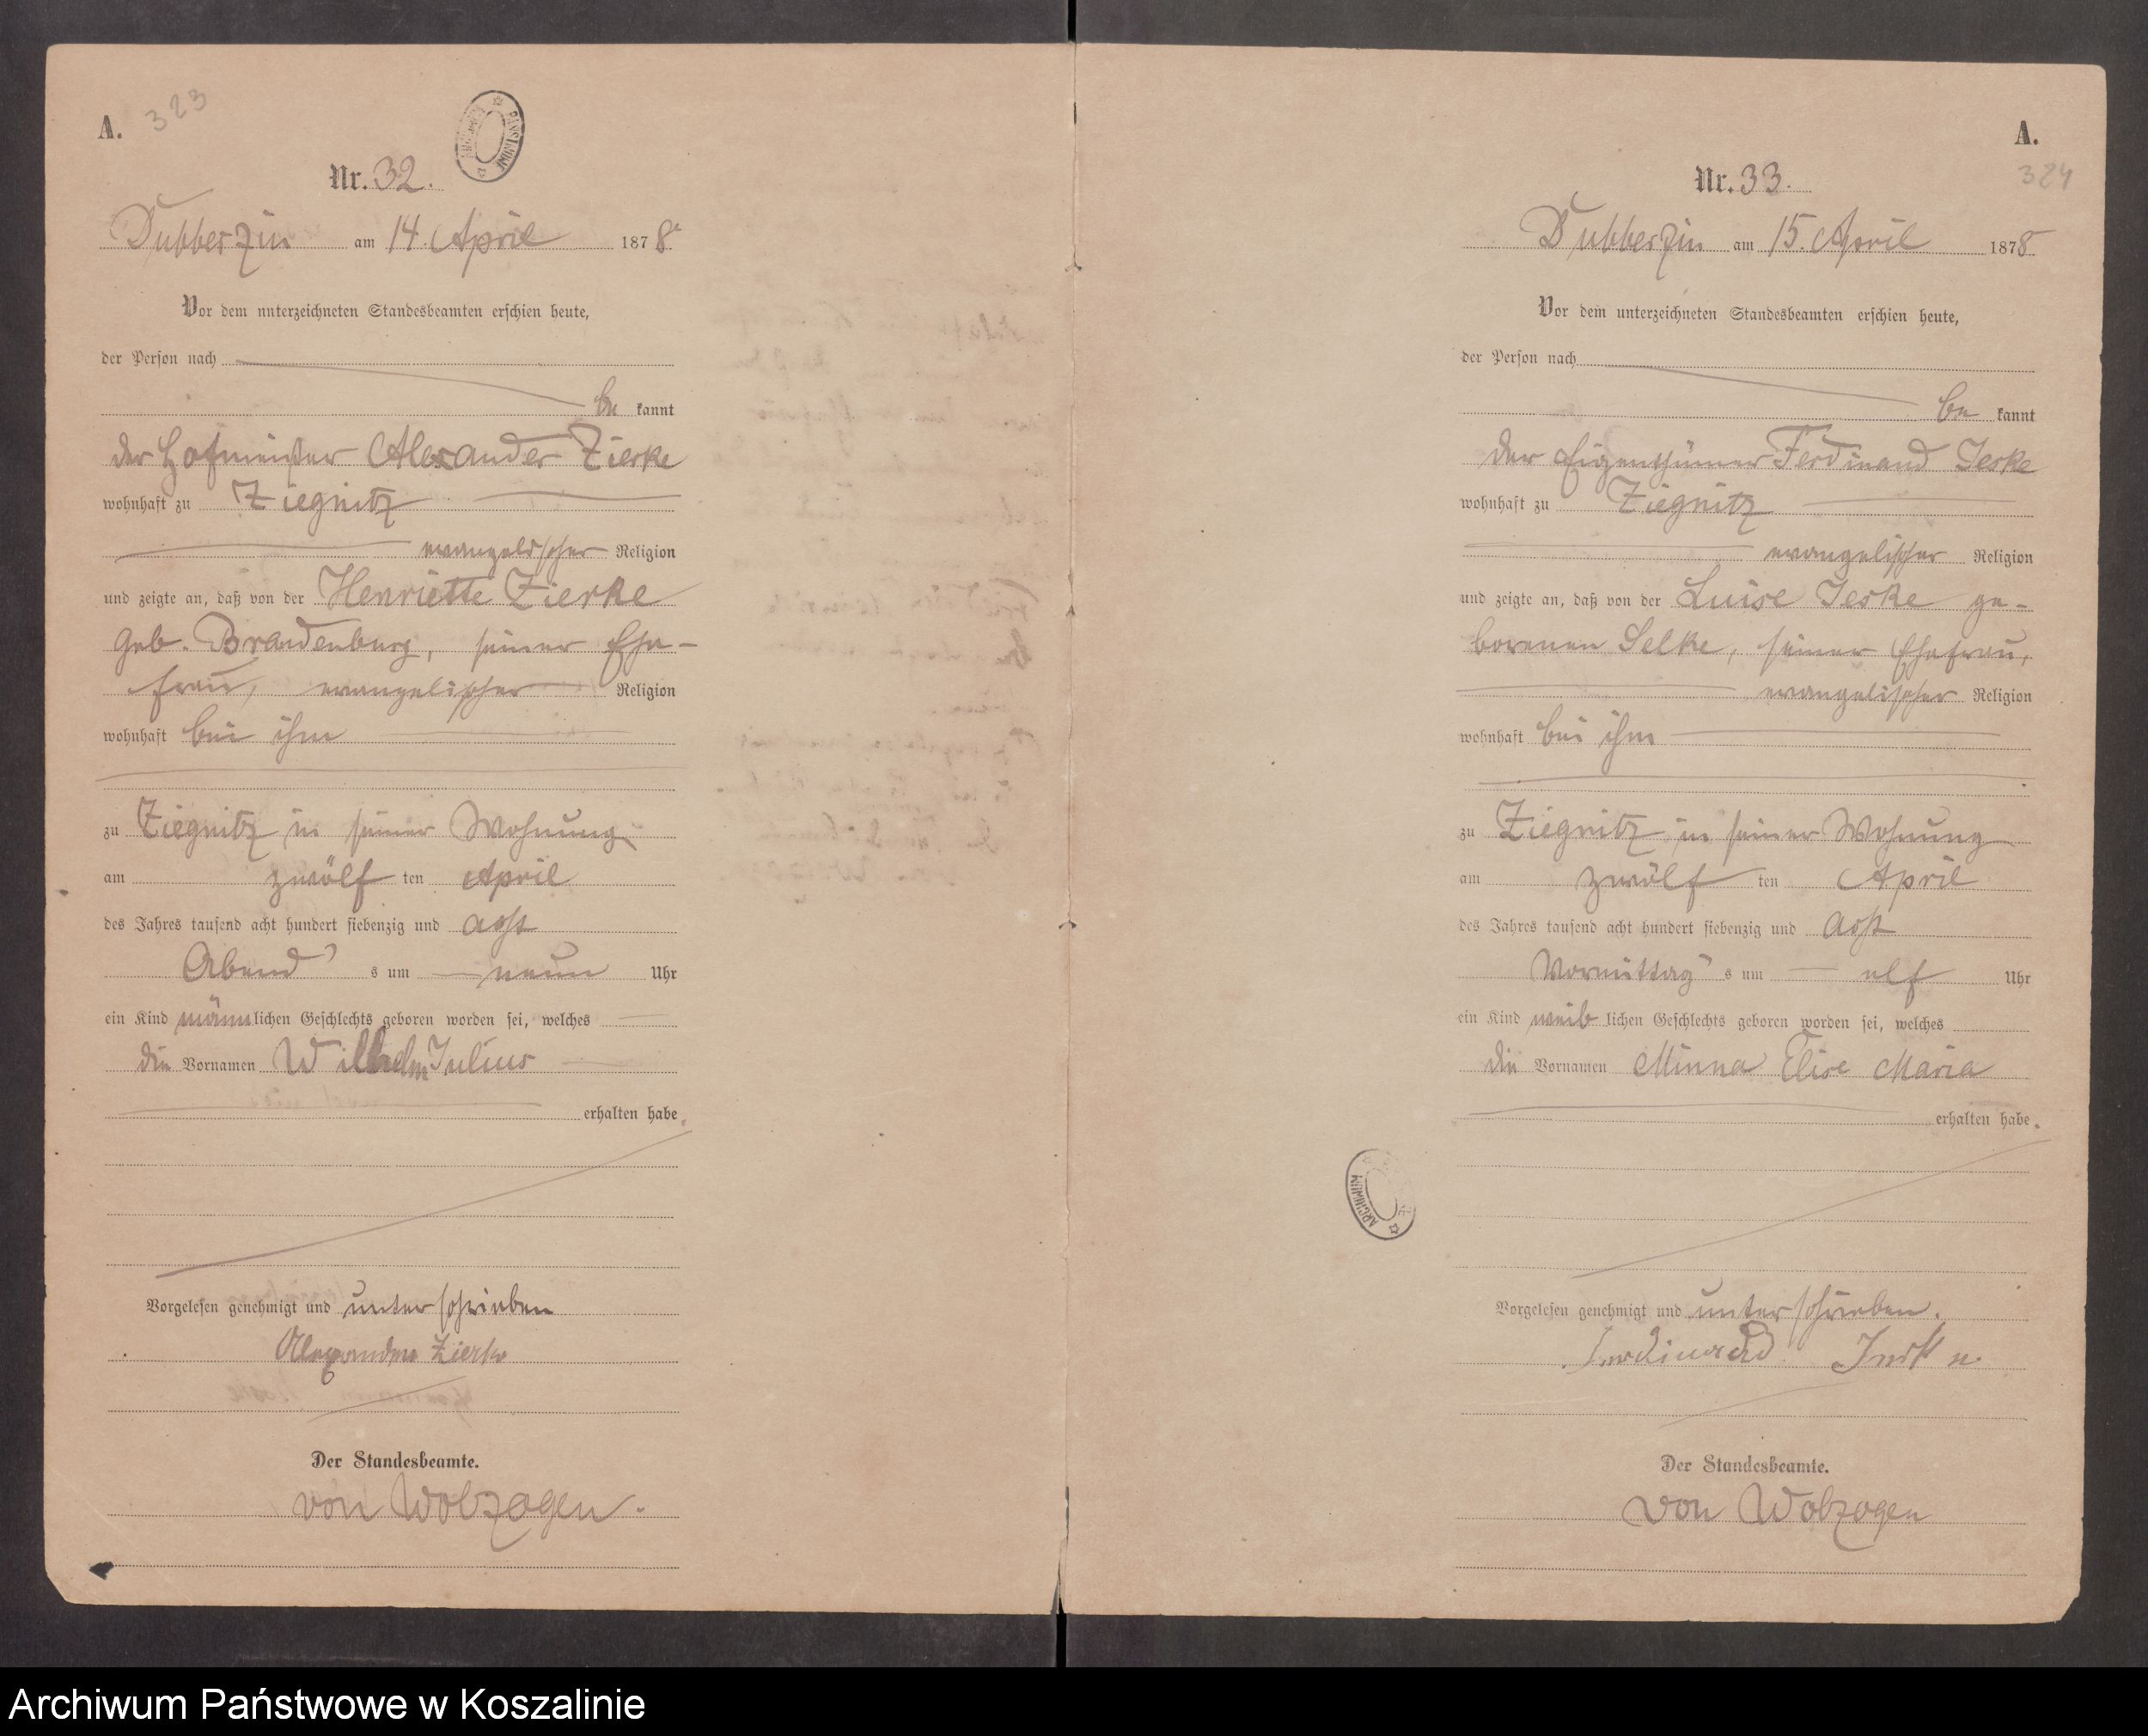 A.
323
Nr. 32.
Dubberzin am 14. April 1878
Vor dem unterzeichneten Standesbeamten erschien heute,
der Person nach
be kannt
der Hofmeister Alexander Zierke
wohnhaft zu Ziegnitz
evangelischer Religion
und zeigte an, daß von der Henriette Zierke
geb. Brandenburg, seiner Ehe-
frau, evangelischer Religion
wohnhaft bei ihm
zu Ziegnitz in seiner Wohnung
am zwölf ten April
des Jahres tausend acht hundert siebenzig und acht
Abend s um neun Uhr
ein Kind männlichen Geschlechts geboren worden sei, welches
die Vornamen Wilhelm Julius
erhalten habe.
Vorgelesen genehmigt und unterschrieben
Alexander Zierke
Der Standesbeamte.
von Wolzogen.
A.
324
Nr. 33.
Dubberzin am 15. April 1878
Vor dem unterzeichneten Standesbeamten erschien heute,
der Person nach
be kannt
der Eigenthümer Ferdinand Jeske
wohnhaft zu Ziegnitz
evangelischer Religion
und zeigte an, daß von der Luise Jeske ge-
borenen Selke, seiner Ehefrau,
evangelischer Religion
wohnhaft bei ihm
zu Ziegnitz in seiner Wohnung
am zwölf ten April
des Jahres tausend acht hundert siebenzig und acht
Vormittag s um elf Uhr
ein Kind weib lichen Geschlechts geboren worden sei, welches
die Vornamen Minna Elise Maria
erhalten habe.
Vorgelesen genehmigt und unterschrieben.
Ferdinand
Der Standesbeamte.
von Wolzogen
Archiwum Państwowe w Koszalinie